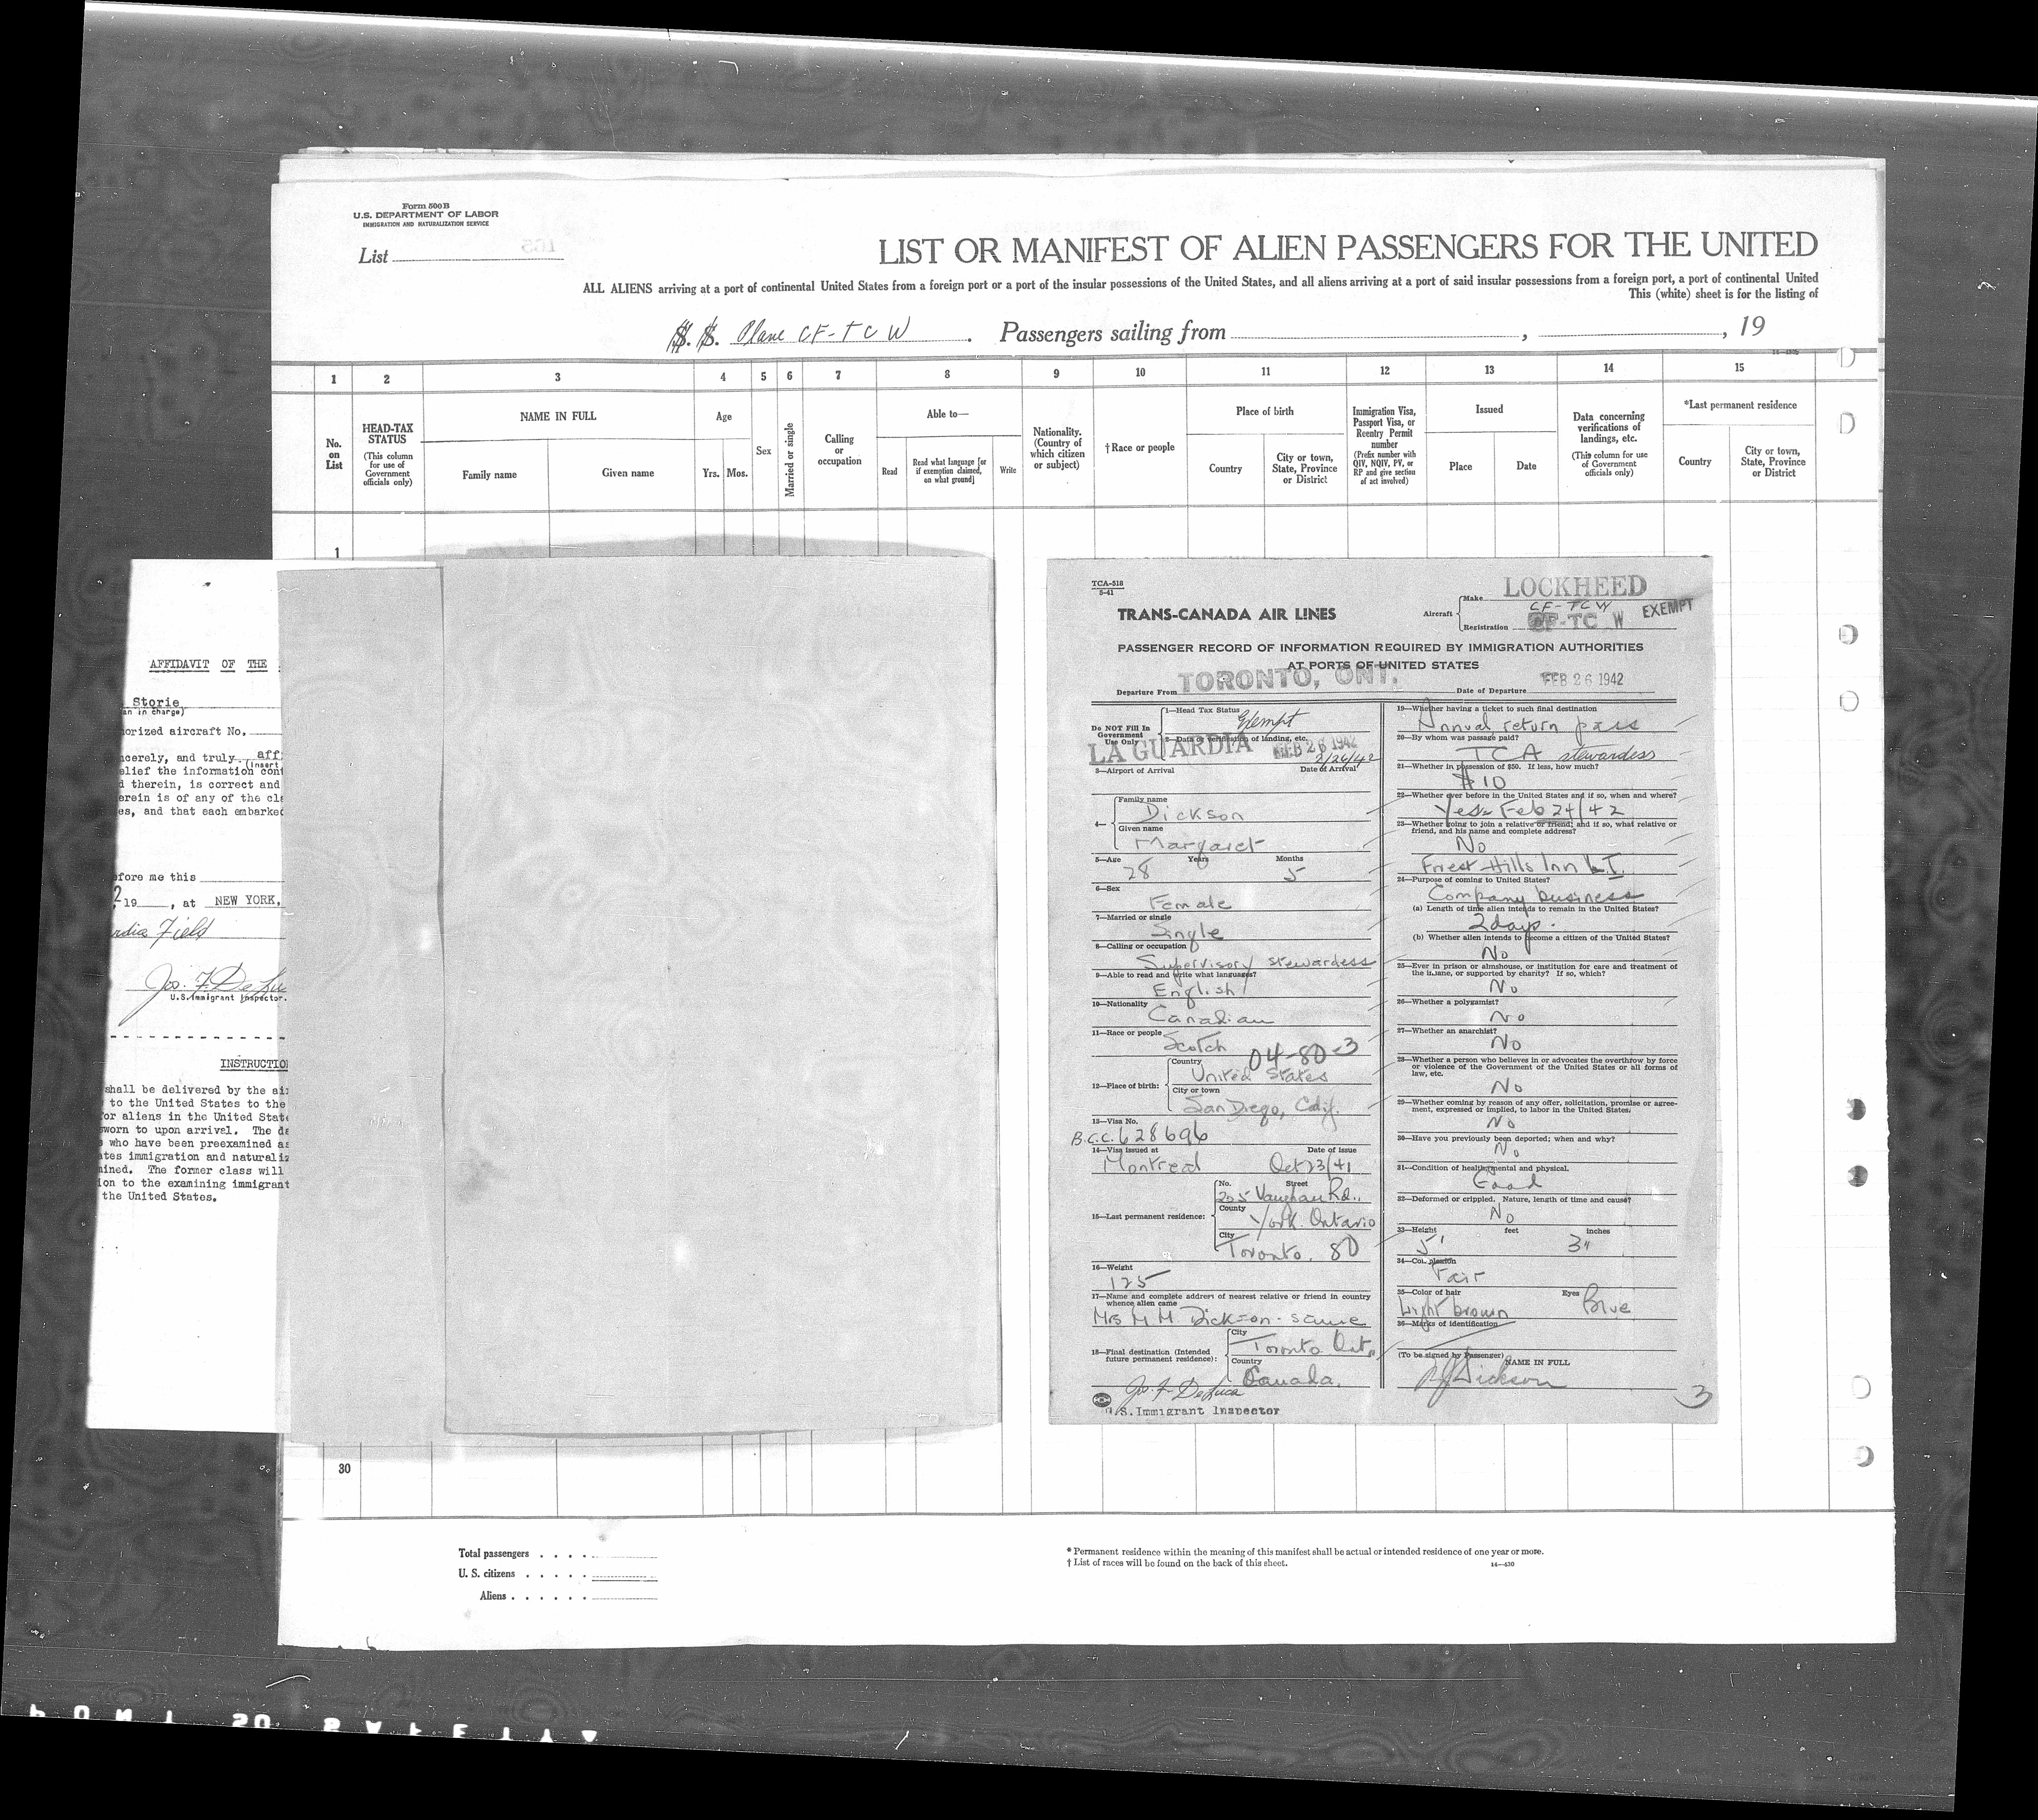 Form 500B
U.S. DEPARTMENT OF LABOR
IMMIGRATION AND NATURALIZATION SERVICE
List
LIST OR MANIFEST OF ALIEN PASSENGERS FOR THE UNITED
ALL ALIENS arriving at a port of continental United States from a foreign port or a port of the insular possessions of the United States, and all aliens arriving at a port of said insular possessions from a foreign port, a port of continental United
This (white) sheet is for the listing of
S. S. Plane CF-TCW. Passengers sailing from , , 19
1 2 3 4 5 6 7 8 9 10 11 12 13 14 15
No. on List
HEAD-TAX STATUS
(This column for use of Government officials only)
NAME IN FULL
Family name Given name
Age
Yrs. Mos.
Sex
Married or single
Calling or occupation
Able to—
Read
Read what language [or if exemption claimed, on what ground]
Write
Nationality. (Country of which citizen or subject)
†Race or people
Place of birth
Country
City or town, State, Province or District
Immigration Visa, Passport Visa, or Reentry Permit number
(Prefix number with QIV, NQIV, PV, or RP and give section of act involved)
Issued
Place Date
Data concerning verifications of landings, etc.
(This column for use of Government officials only)
*Last permanent residence
Country
City or town, State, Province or District
1
AFFIDAVIT OF THE
Storie
an in charge)
orized aircraft No.
cerely, and truly aff
(insert
elief the information cont
d therein, is correct and
erein is of any of the cla
es, and that each embarked
efore me this
2 19 , at NEW YORK,
rdia Field
Jos. F. DeLu
U.S.Immigrant Inspector.
INSTRUCTIO
shall be delivered by the ai
to the United States to the
or aliens in the United State
sworn to upon arrival. The de
who have been preexamined as
ates immigration and naturaliz
ined. The former class will
ion to the examining immigrant
the United States.
TCA-518
5-41
TRANS-CANADA AIR LINES
Aircraft
Make LOCKHEED
CF-TCW
Registration CF-TC W
EXEMPT
PASSENGER RECORD OF INFORMATION REQUIRED BY IMMIGRATION AUTHORITIES
AT PORTS OF UNITED STATES
Departure From TORONTO, ONT. Date of Departure FEB 26 1942
Do NOT Fill In
Government
Use Only
1—Head Tax Status Exempt
2—Data of verification of landing, etc.
LA GUARDIA FEB 26 1942
2/26/42
3—Airport of Arrival Date of Arrival
4—
Family name
Dickson
Given name
Margaret
5—Age Years Months
28 5
6—Sex
Female
7—Married or single
Single
8—Calling or occupation
Supervisory stewardess
9—Able to read and write what languages?
English
10—Nationality
Canadian
11—Race or people
Scotch 04-80-3
12—Place of birth:
Country
United States
City or town
San Diego, Calif.
13—Visa No.
B.C.C. 628696
14—Visa issued at Date of issue
Montreal Oct 23/41
15—Last permanent residence:
No. Street
205 Vaughan Rd.,
County
York. Ontario
City
Toronto. 80
16—Weight
125
17—Name and complete address of nearest relative or friend in country
whence alien came
Mrs M M Dickson - same
18—Final destination (Intended
future permanent residence):
City
Toronto Ont.
Country
Canada.
Jos. F. DeLuca
U.S. Immigrant Inspector
19—Whether having a ticket to such final destination
Annual return pass
20—By whom was passage paid?
TCA stewardess
21—Whether in possession of $50. If less, how much?
$10
22—Whether ever before in the United States and if so, when and where?
Yes Feb 24/42
23—Whether going to join a relative or friend; and if so, what relative or
friend, and his name and complete address?
No
Forest Hills Inn L.I.
24—Purpose of coming to United States?
Company business
(a) Length of time alien intends to remain in the United States?
2 days.
(b) Whether alien intends to become a citizen of the United States?
No
25—Ever in prison or almshouse, or institution for care and treatment of
the insane, or supported by charity? If so, which?
No
26—Whether a polygamist?
No
27—Whether an anarchist?
No
28—Whether a person who believes in or advocates the overthrow by force
or violence of the Government of the United States or all forms of
law, etc.
No
29—Whether coming by reason of any offer, solicitation, promise or agree-
ment, expressed or implied, to labor in the United States.
No
30—Have you previously been deported; when and why?
No
31—Condition of health, mental and physical.
Good
32—Deformed or crippled. Nature, length of time and cause?
No
33—Height feet inches
5' 3"
34—Complexion
Fair
35—Color of hair Eyes
Light brown Blue
36—Marks of identification
(To be signed by Passenger) NAME IN FULL
Dickson
3
30
Total passengers
U. S. citizens
Aliens
* Permanent residence within the meaning of this manifest shall be actual or intended residence of one year or more.
† List of races will be found on the back of this sheet.
14—430